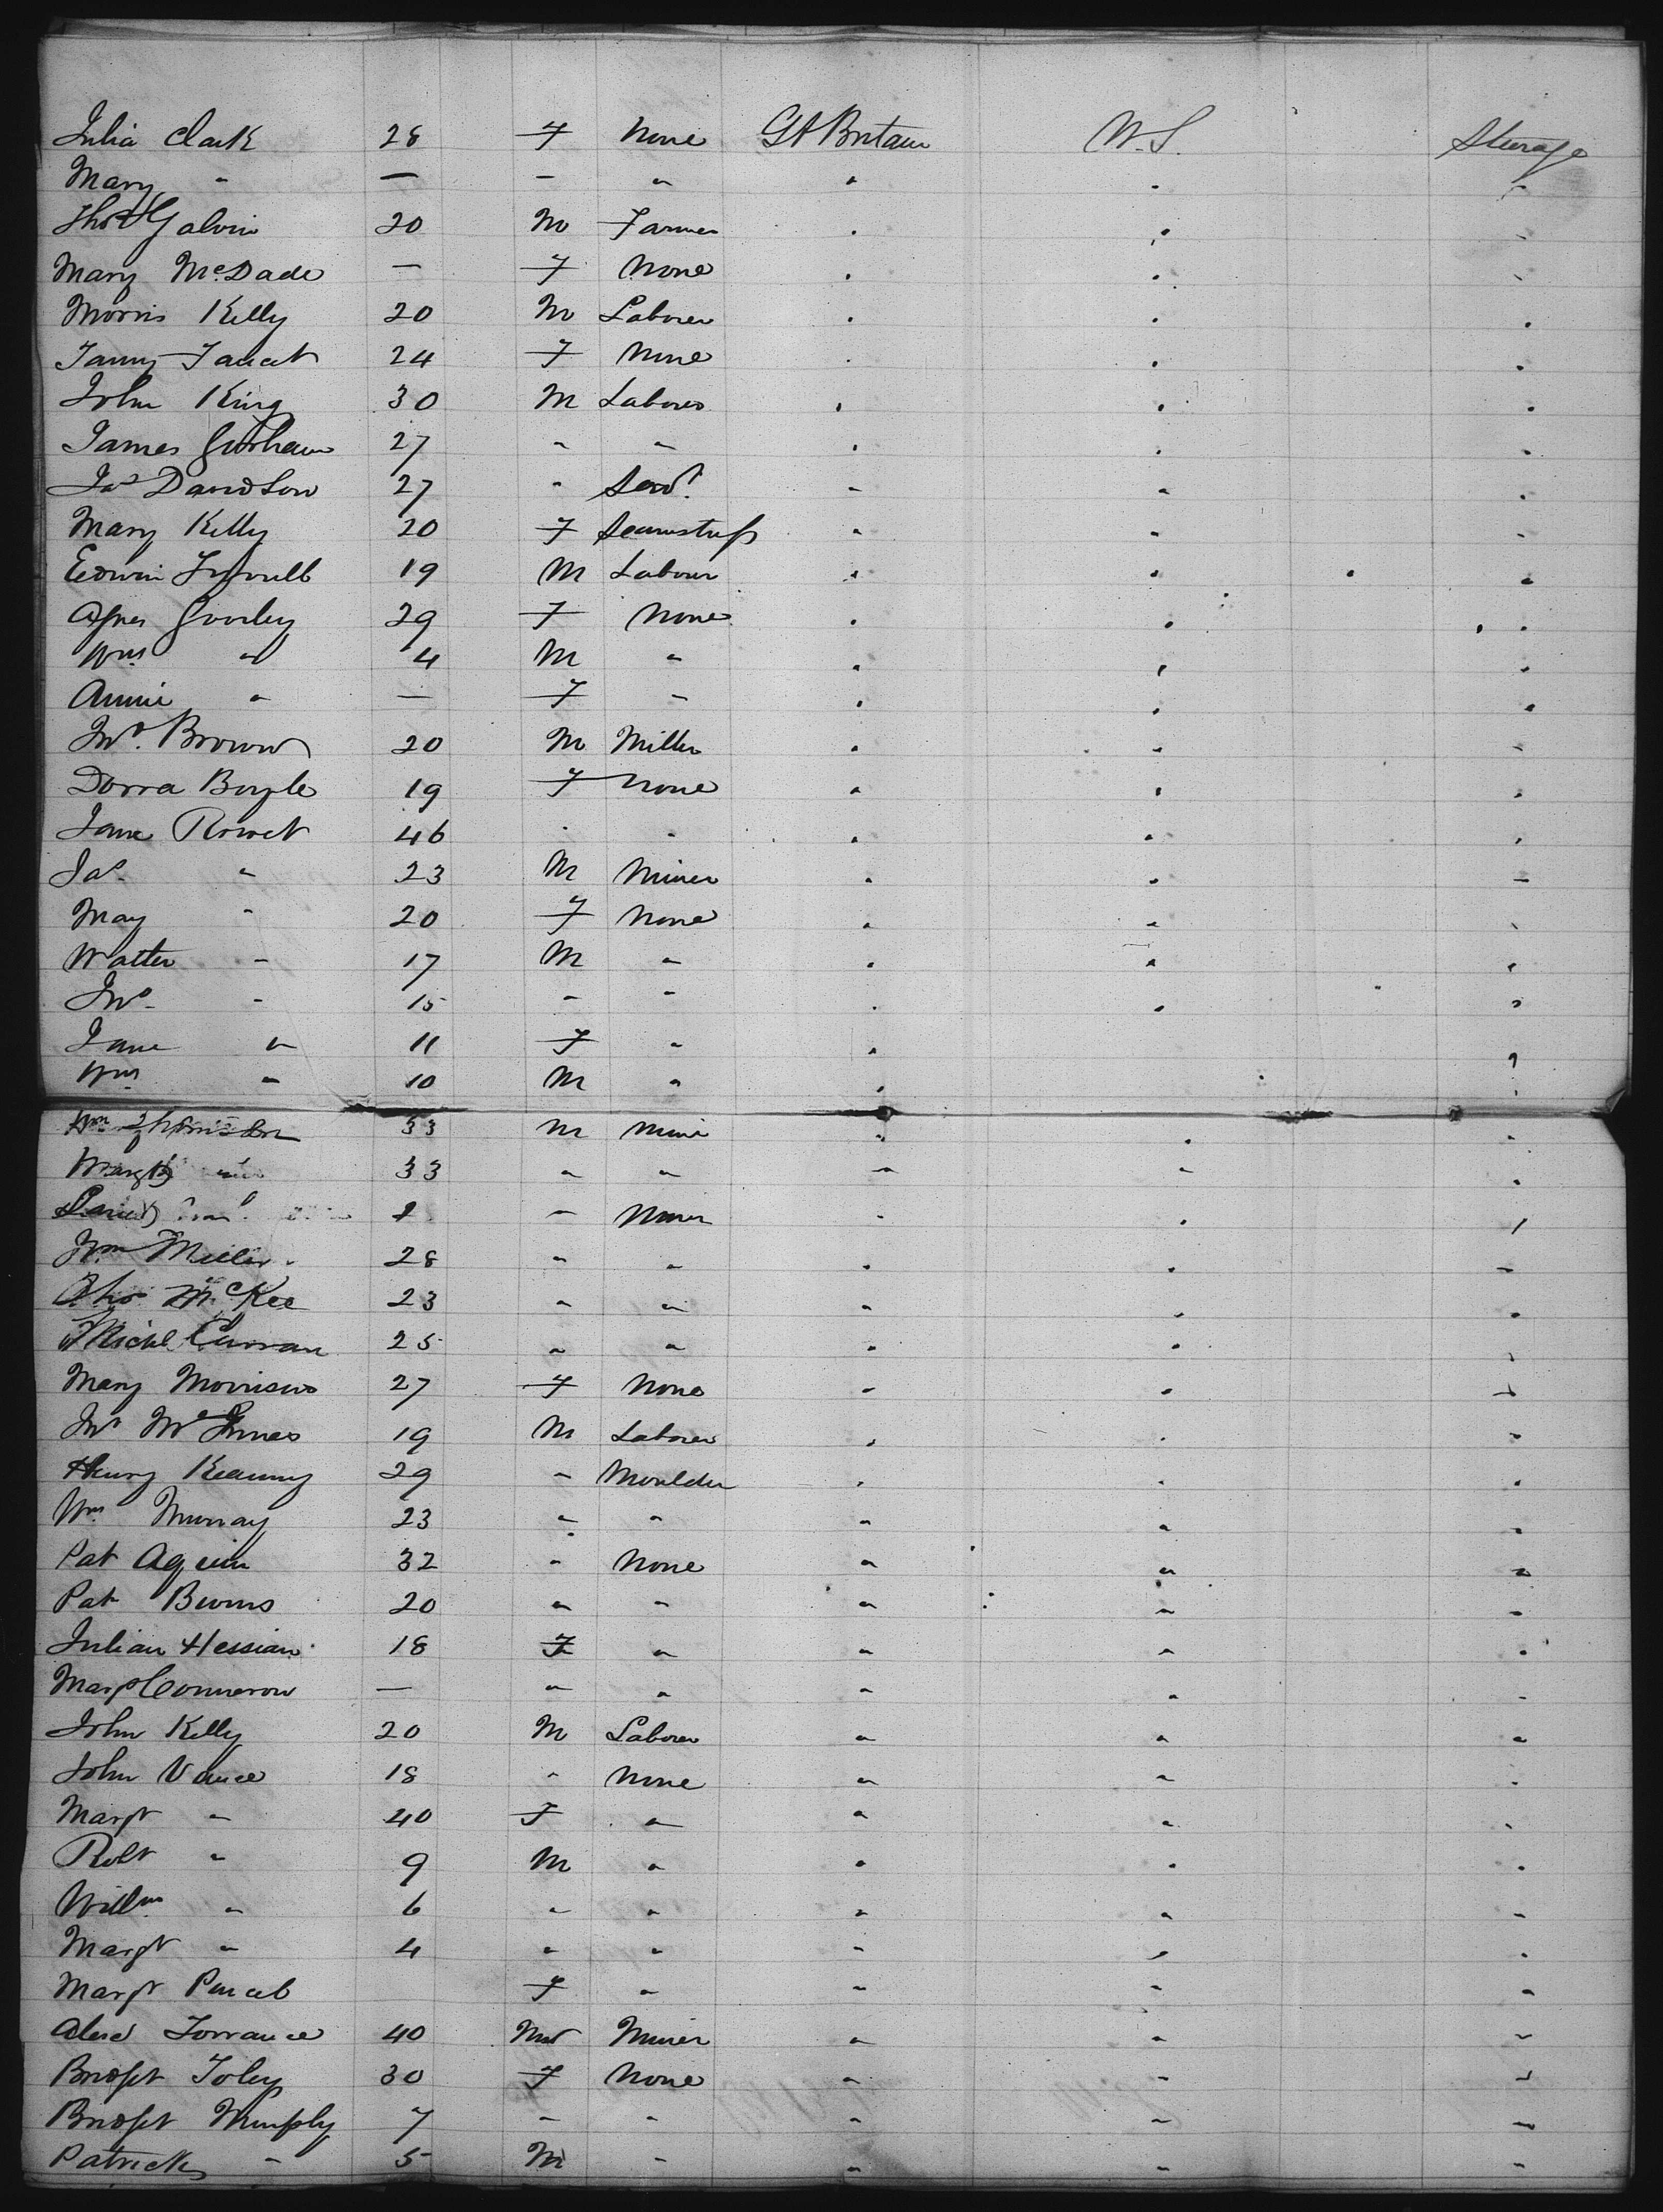 Julia Clark 28 F None Gt Britain U.S. Steerage
Mary " — — " " " "
Thos Galvin 20 M Farmer " " "
Mary McDade — F None " " "
Morris Kelly 20 M Laborer " " "
Fanny 24 F None " " "
John King 30 M Laborer " " "
James 27 " " " " "
Jas Davidson 27 " Servt " " "
Mary Kelly 20 F Seamstress " " "
Edwin 19 M Laborer " " "
Agnes Gourley 29 F None " " "
Wm " 4 M " " " "
Annie " — F " " " "
Jno. Brown 20 M Miller " " "
Dorra Boyle 19 F None " " "
Jane Rowet 46 " " " " "
Jas " 23 M Miner " " "
May " 20 F None " " "
Walter " 17 M " " " "
Jno " 15 " " " " "
Jane " 11 F " " " "
Wm " 10 M " " " "
Wm 33 M " " "
Margt 33 " " " " "
2 " Miner " " "
Wm Miller 28 " " " " "
McKee 23 " " " " "
Michl Curran 25 " " " " "
Mary Morrison 27 F None " " "
Jno McInnes 19 M Laborer " " "
Henry Kearney 29 " Moulder " " "
Wm Murray 23 " " " " "
Pat 32 " None " " "
Pat Burns 20 " " " " "
Julian Hessian 18 F " " " "
— " " " " "
John Kelly 20 M Laborer " " "
John Vance 18 " None " " "
Margt " 40 F " " " "
Robt " 9 M " " " "
Willm " 6 " " " " "
Margt " 4 " " " " "
Margt F " " " "
Alexr Torrance 40 M Miner " " "
Bridget Foley 30 F None " " "
Bridget Murphy 7 " " " " "
Patrick " 5 M " " " "